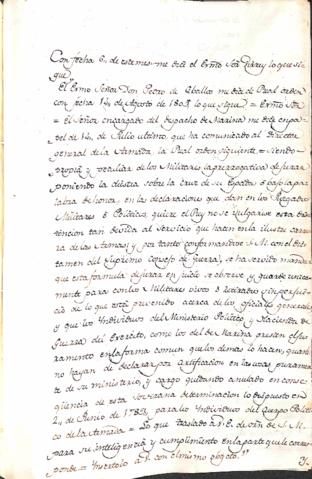 Con fecha 6 de este mes me dice el Exmo Sor Garay lo que si-
gue
El Exmo Señor Don Pedro de Ceballos me dice de Real orden
con fecha 14 de Agosto de 180 lo que sigue = Exmo Sor
= El Señor encargado del despacho de Marina me dice en pa-
pel de 14 de Julio ultimo que ha comunicado al Director
general de la Armada, la Real orden siguiente = siendo
propia y peculiar de los Militares la prerrogativa de jurar
poniendo la diestra sobre la cruz de su Espada o bajo la pa-
labra de honor, en las declaraciones que dan en los Juzgados
Militares o Politicos, quiere el Rey no se bulgarice esta dis-
tincion tan devida al servicio que hacen en la ilustre carre-
ra de las Armas; y por tanto conformandose S. M. con el dicta-
tamen del Supremo Consejo de Guerra, se ha servido mandar
que esta formula de jurar en juicio se observe y guarde unica-
mente para con los Militares vivos o retirados sin perjui-
cio de lo que está prevenido acerca de los oficiales generales
y que los Yndividuos del Ministerio Politico y Hacienda de
Guerra del Exercito, como los del de Marina presten el ju-
ramento en la forma comun que los demas lo hacen, quan-
do hayan de declarar por certificacion en las cosas puramen-
te de su ministerio, y cargo quedando anulado en conse-
qüencia de esta soverana determinacion lo dispuesto en
24 de Junio de 178 para los Yndividuos del Cuerpo Politi-
co de la Armada = Lo que traslado a V. E. de orn de S. M.
para su inteligencia y cumplimiento en la parte que le corres-
ponde = Ynsertolo a V. con el mismo objeto."